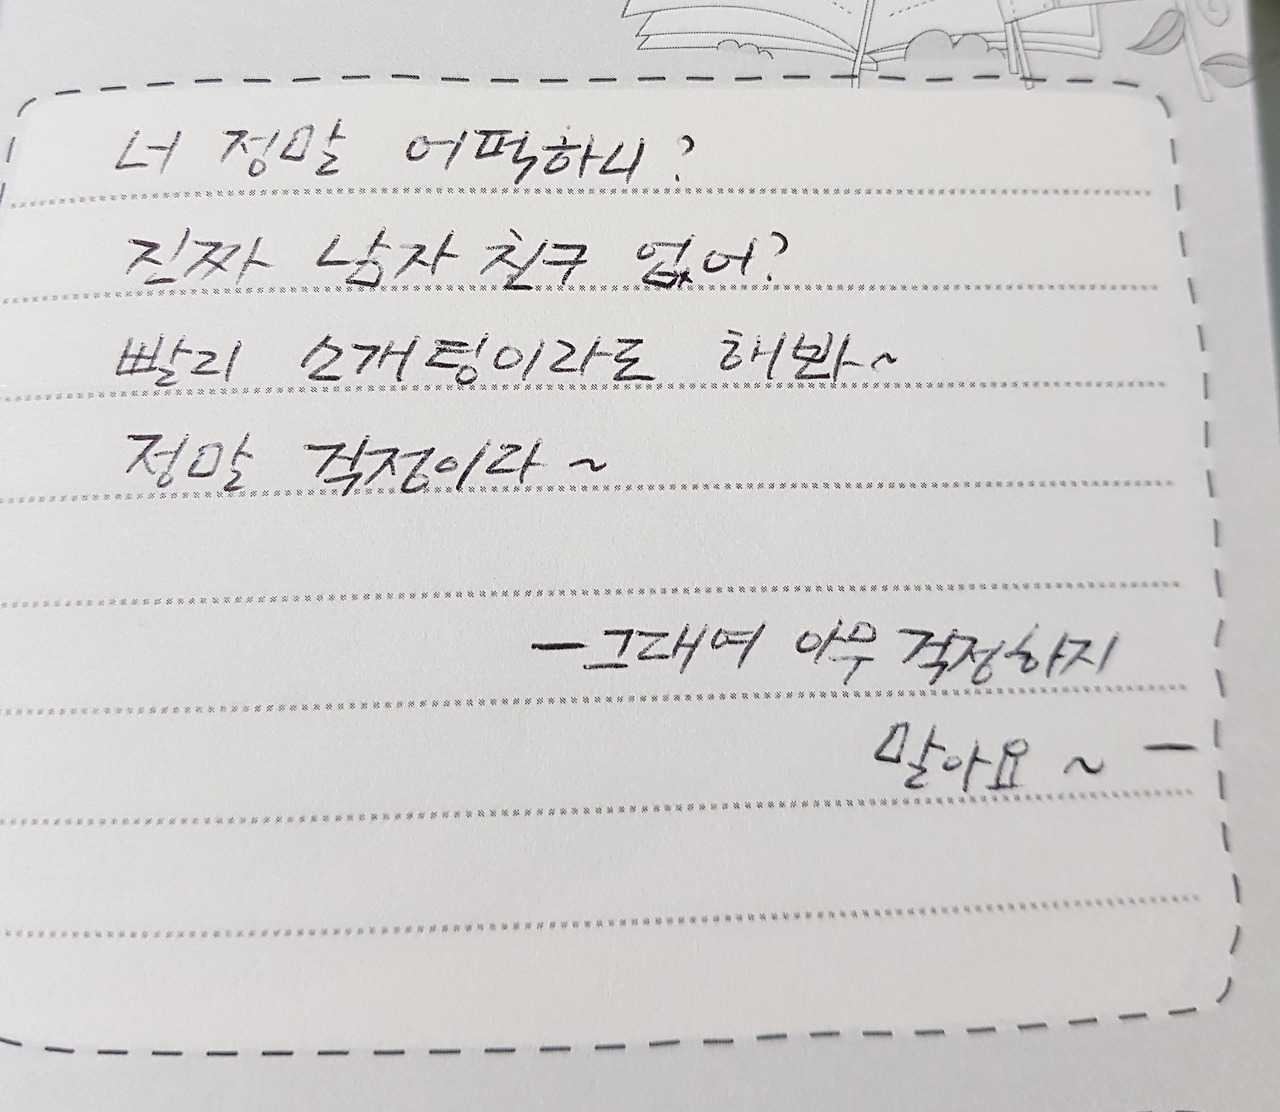 너 정말 어떡하니?
진짜 남자 친구 없어?
빨리 소개팅이라도 해봐~
정말 걱정이라~
—그대여 아무 걱정하지
말아요 ~ —